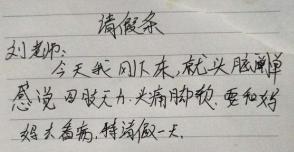 请假条
刘老师:
今天我刚下床,就头脑
感说四肢无力.头痛脚软.要和妈
妈去看病.特请假一天.